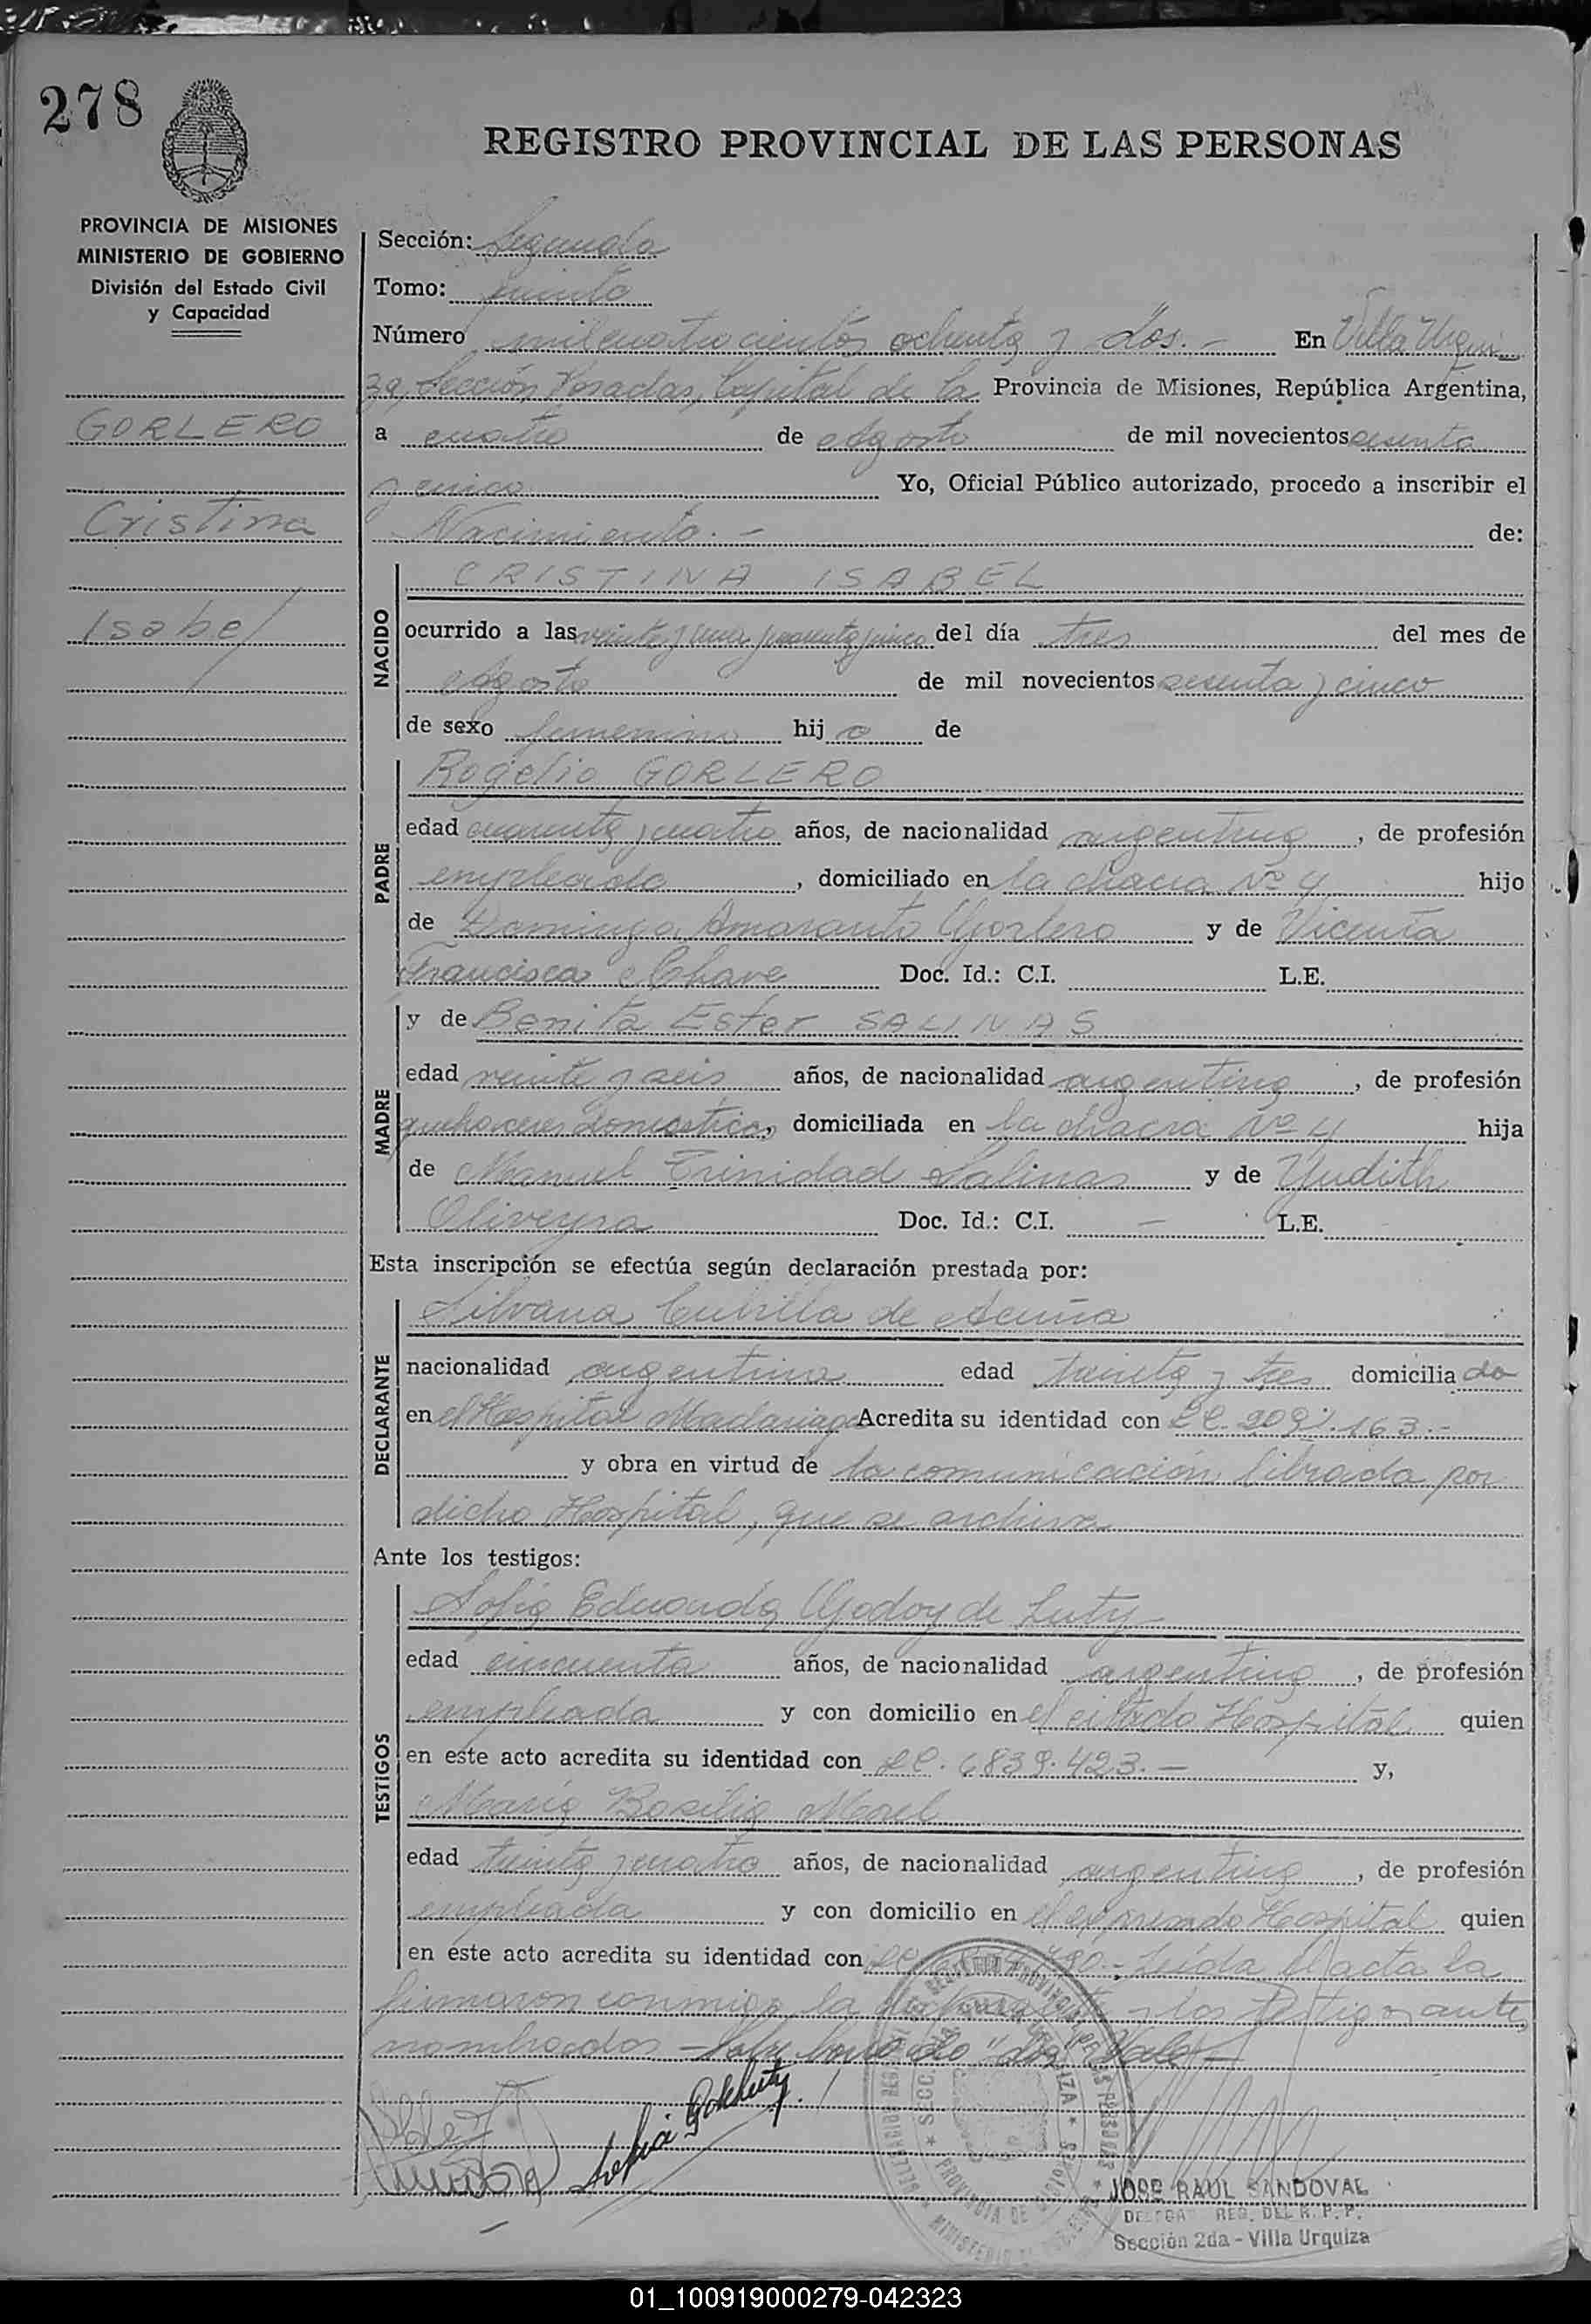 278
REGISTRO PROVINCIAL DE LAS PERSONAS
PROVINCIA DE MISIONES
MINISTERIO DE GOBIERNO
División del Estado Civil
y Capacidad
GORLERO
Cristina
Isabel
Sección: Segunda
Tomo: quinto
Número mil cuatrocientos ochenta y dos.- En Villa Urqui
za, Sección Posadas, Capital de la Provincia de Misiones, República Argentina,
a cuatro de Agosto de mil novecientos sesenta
y cinco Yo, Oficial Público autorizado, procedo a inscribir el
Nacimiento.- de:
NACIDO
CRISTINA ISABEL
ocurrido a las veinte y una y cuarenta y cinco del día tres del mes de
Agosto de mil novecientos sesenta y cinco
de sexo femenino hij a de
PADRE
Rogelio GORLERO
edad cuarenta y cuatro años, de nacionalidad argentina, de profesión
empleado, domiciliado en la chacra Nº 4 hijo
de Domingo Amaranto Gorlero y de Vicenta
Francisca Chave Doc. Id.: C.I. L.E.
MADRE
y de Benita Ester SALINAS
edad veinte y seis años, de nacionalidad argentina, de profesión
quehaceres domésticos, domiciliada en la chacra Nº 4 hija
de Manuel Trinidad Salinas y de Yudith
Oliveyra Doc. Id.: C.I. — L.E.
Esta inscripción se efectúa según declaración prestada por:
DECLARANTE
Silvana Cubilla de Acuña
nacionalidad argentina edad treinta y tres domicilia da
en el Hospital Madariaga Acredita su identidad con LC. 163.-
y obra en virtud de la comunicación librada por
dicho Hospital, que se archiva
Ante los testigos:
TESTIGOS
Sofía Eduarda Godoy de Luty
edad cincuenta años, de nacionalidad argentina, de profesión
empleada y con domicilio en el citado Hospital quien
en este acto acredita su identidad con LC. 6839.423.- y,
María Basilia Mael
edad treinta y cuatro años, de nacionalidad argentina, de profesión
empleada y con domicilio en el expresado Hospital quien
en este acto acredita su identidad con LC. Leída el acta la
firmaron conmigo la declarante y los testigos antes
nombrados - Sobre borrado "dos" Vale -
Sofía
JOSE RAUL SANDOVAL
DELEGA REG. DEL R. P. P.
Sección 2da - Villa Urquiza
01_100919000279-042323